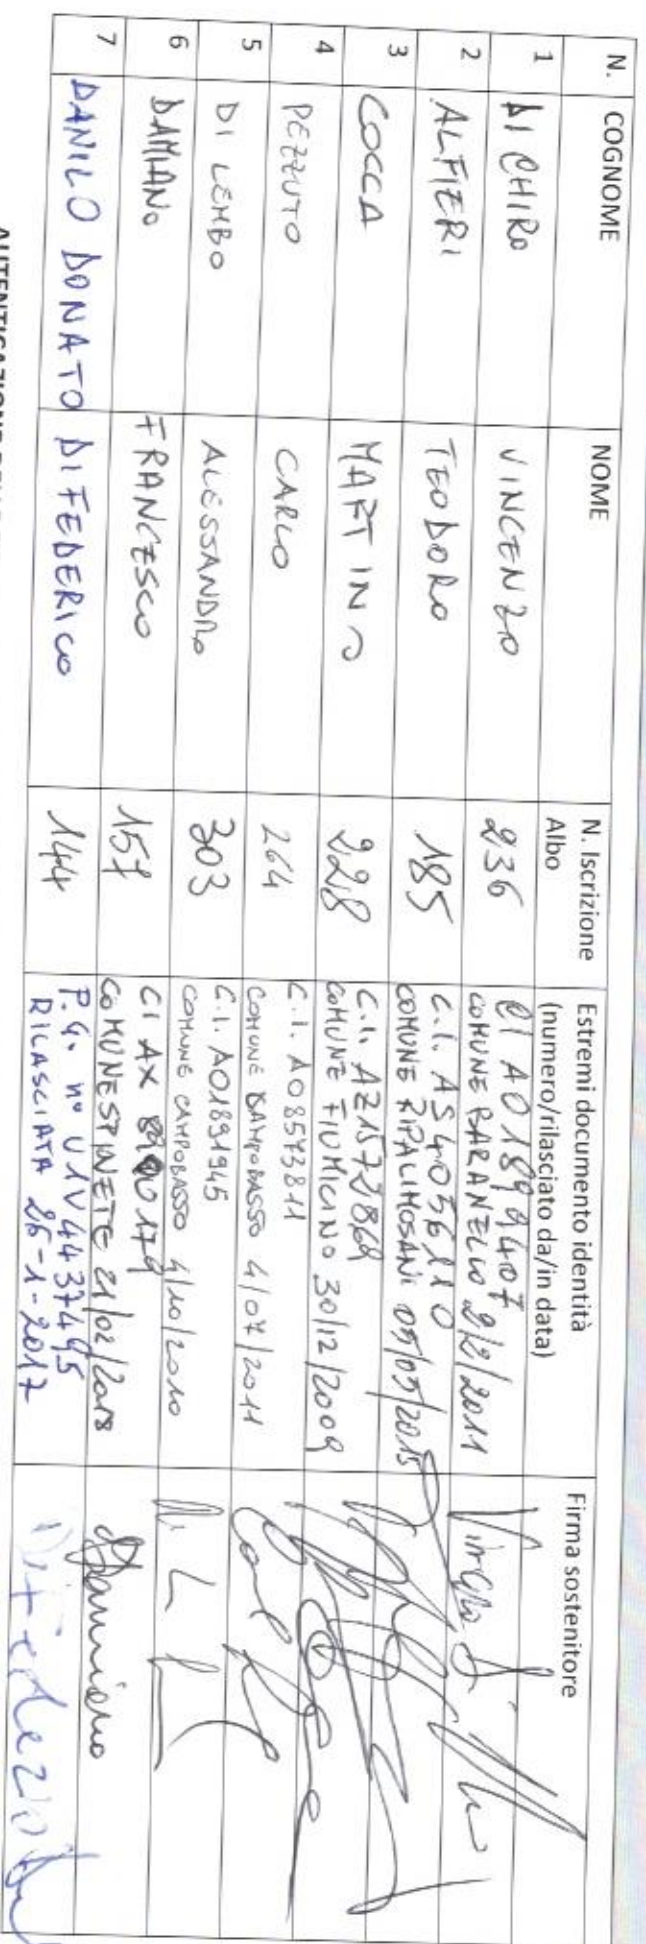 N. COGNOME NOME N. Iscrizione Albo Estremi documento identità (numero/rilasciato da/in data) Firma sostenitore
1 DI CHIRO VINCENZO 236 CI AO1899407
COMUNE BARANELLO 2/2/2011
2 ALFIERI TEODORO 185 C.I. AS4056110
COMUNE RIPALIMOSANI 05/05/2015
3 COCCA MARTINO 228 C.I. AZ1572869
COMUNE FIUMICINO 30/12/2009
4 PEZZUTO CARLO 264 C.I. AO8573811
COMUNE CAMPOBASSO 4/07/2011
5 DI LEMBO ALESSANDRO 303 C.I. AO1891945
COMUNE CAMPOBASSO 4/10/2010
6 DAMIANO FRANCESCO 157 CI AX
COMUNE SPINETE 21/02/2018 Damiano
7 DANILO DONATO DI FEDERICO 144 P.G. n° U1V443749S
RILASCIATA 26-1-2017